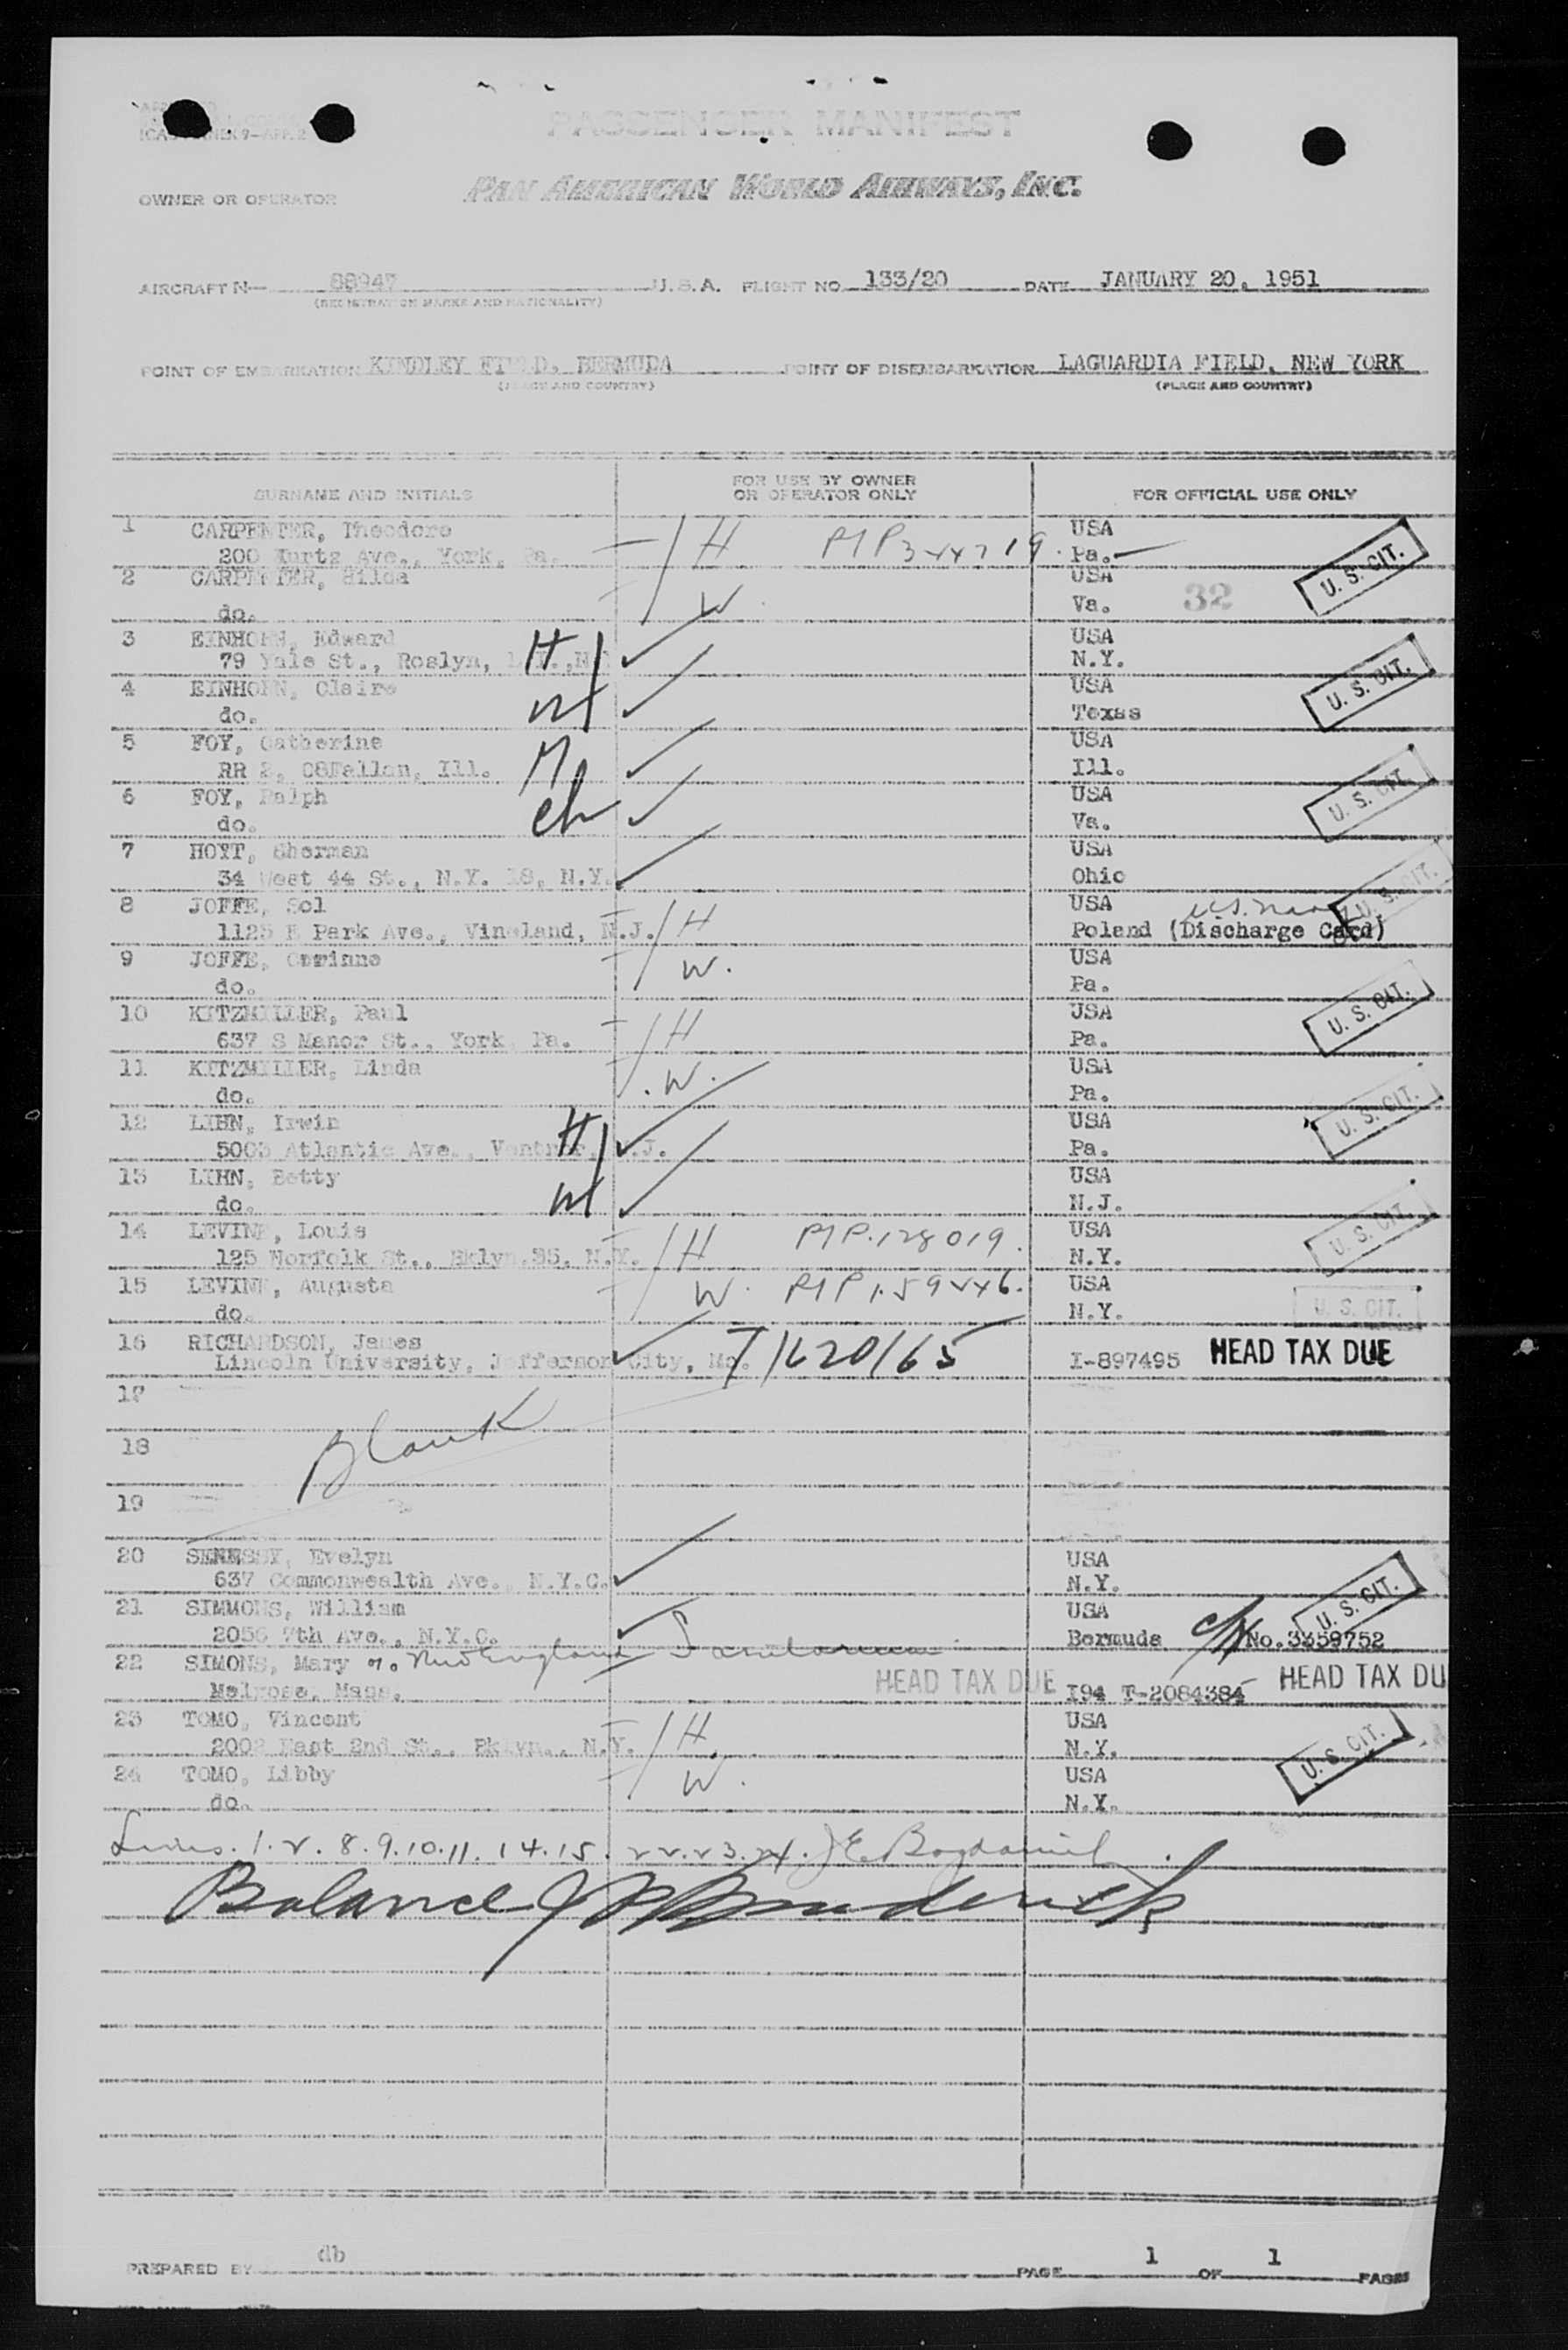 PASSENGER MANIFEST
OWNER OR OPERATOR PAN AMERICAN WORLD AIRWAYS, INC.
AIRCRAFT N— 88947 U.S.A. FLIGHT NO. 133/20 DATE JANUARY 20, 1951
(REGISTRATION MARKS AND NATIONALITY)
POINT OF EMBARKATION KINDLEY FIELD, BERMUDA POINT OF DISEMBARKATION LAGUARDIA FIELD, NEW YORK
(PLACE AND COUNTRY) (PLACE AND COUNTRY)
SURNAME AND INITIALS FOR USE BY OWNER OR OPERATOR ONLY FOR OFFICIAL USE ONLY
1 CARPENTER, Theodore USA
200 Kurtz Ave., York, Pa. H Pa.
2 CARPENTER, Hilda USA U. S. CIT.
do. W. Va. 32
3 EINHORN, Edward H USA
79 Yale St., Roslyn, L.I.,N.Y. N.Y.
4 EINHORN, Claire USA U. S. CIT.
do. W Texas
5 FOY, Catherine M USA
RR 2, O8Fallon, Ill. Ill.
6 FOY, Ralph ch USA U. S. CIT.
do. Va.
7 HOYT, Sherman USA
34 West 44 St., N.Y. 18, N.Y. Ohio U. S. CIT.
8 JOFFE, Sol H USA
1125 E Park Ave., Vineland, N.J. Poland (Discharge Card)
9 JOFFE, Corinne W. USA
do. Pa.
10 KITZMILLER, Paul H USA U. S. CIT.
637 S Manor St., York, Pa. Pa.
11 KITZMILLER, Linda W. USA
do. Pa.
12 LIHN, Irwin H USA U. S. CIT.
5003 Atlantic Ave., Ventnor, N.J. Pa.
13 LIHN, Betty USA
do. W N.J.
14 LEVINE, Louis USA U. S. CIT.
125 Norfolk St., Bklyn.35, N.Y. H N.Y.
15 LEVINE, Augusta W. USA
do. N.Y. U. S. CIT.
16 RICHARDSON, James
Lincoln University, Jefferson City, Mo. I-897495 HEAD TAX DUE
17
18 Blank
19
20 SENESSY, Evelyn USA
637 Commonwealth Ave., N.Y.C. N.Y. U. S. CIT.
21 SIMMONS, William USA
2056 7th Ave., N.Y.C. Bermuda No.3359752
22 SIMONS, Mary New England Sanitarium
Melrose, Mass. HEAD TAX DUE I94 T-2084384 HEAD TAX DU
23 TOMO, Vincent H. USA
2002 East 2nd St., Bklyn., N.Y. N.Y. U. S. CIT.
24 TOMO, Libby W. USA
do. N.Y.
Lines. 1. 2. 8. 9. 10. 11. 14. 15. 22. 23. 24.
Balance
PREPARED BY db PAGE 1 OF 1 PAGES